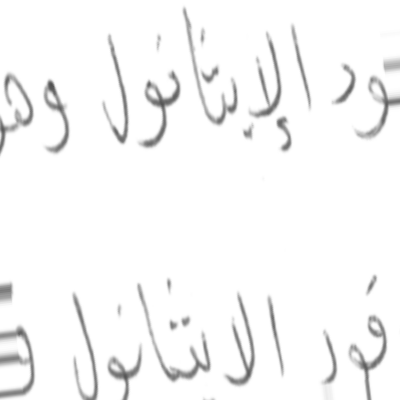 ود الإيثانول وهو
قود الايثانول